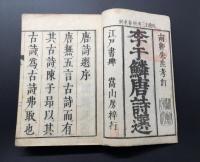 南郭先生考訂
李于鱗唐詩選
江戸書肆 嵩山房梓行
唐詩選序
唐無五言古詩而有
其古詩陳子昂以其
古詩爲古詩弗取也